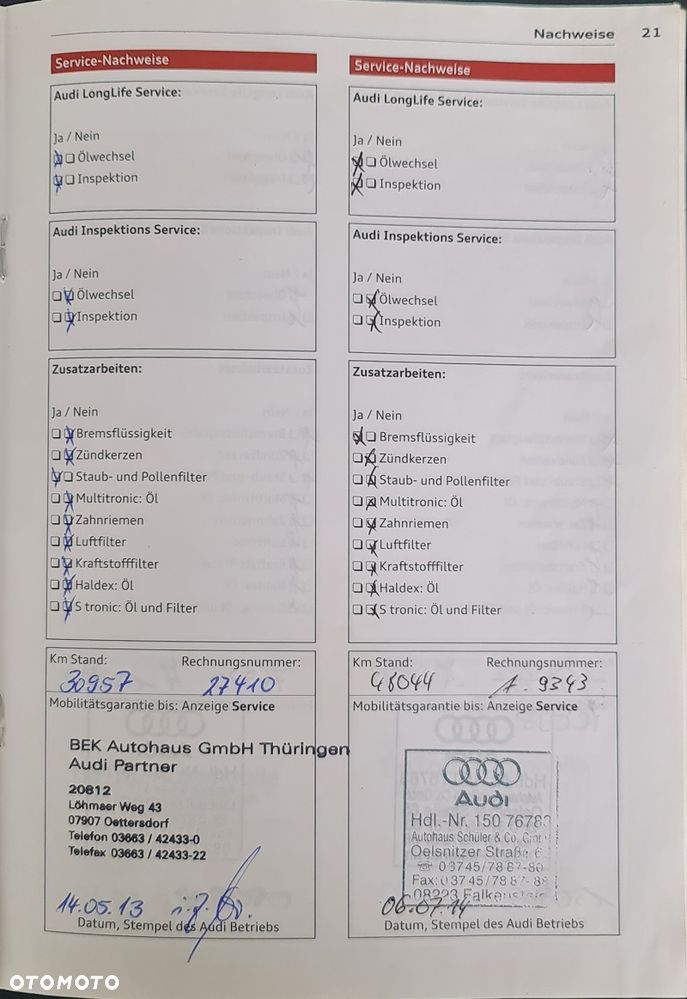 Nachweise 21
Service-Nachweise
Audi LongLife Service:
Ja / Nein
Ölwechsel
Inspektion
Audi Inspektions Service:
Ja / Nein
Ölwechsel
Inspektion
Zusatzarbeiten:
Ja / Nein
Bremsflüssigkeit
Zündkerzen
Staub- und Pollenfilter
Multitronic: Öl
Zahnriemen
Luftfilter
Kraftstofffilter
Haldex: Öl
S tronic: Öl und Filter
Km Stand: Rechnungsnummer:
30957 27410
Mobilitätsgarantie bis: Anzeige Service
BEK Autohaus GmbH Thüringen
Audi Partner
20812
Löhmaer Weg 43
07907 Oettersdorf
Telefon 03663 / 42433-0
Telefax 03663 / 42433-22
14.05.13
Datum, Stempel des Audi Betriebs
Service-Nachweise
Audi LongLife Service:
Ja / Nein
Ölwechsel
Inspektion
Audi Inspektions Service:
Ja / Nein
Ölwechsel
Inspektion
Zusatzarbeiten:
Ja / Nein
Bremsflüssigkeit
Zündkerzen
Staub- und Pollenfilter
Multitronic: Öl
Zahnriemen
Luftfilter
Kraftstofffilter
Haldex: Öl
S tronic: Öl und Filter
Km Stand: Rechnungsnummer:
48044 1. 9343
Mobilitätsgarantie bis: Anzeige Service
Audi
Hdl.-Nr. 150 76783
Autohaus Schüler & Co. GmbH
Oelsnitzer Straße 6
03745/78 87-80
Fax: 03745/78 87-88
08223 Falkenstein
06.07.14
Datum, Stempel des Audi Betriebs
OTOMOTO